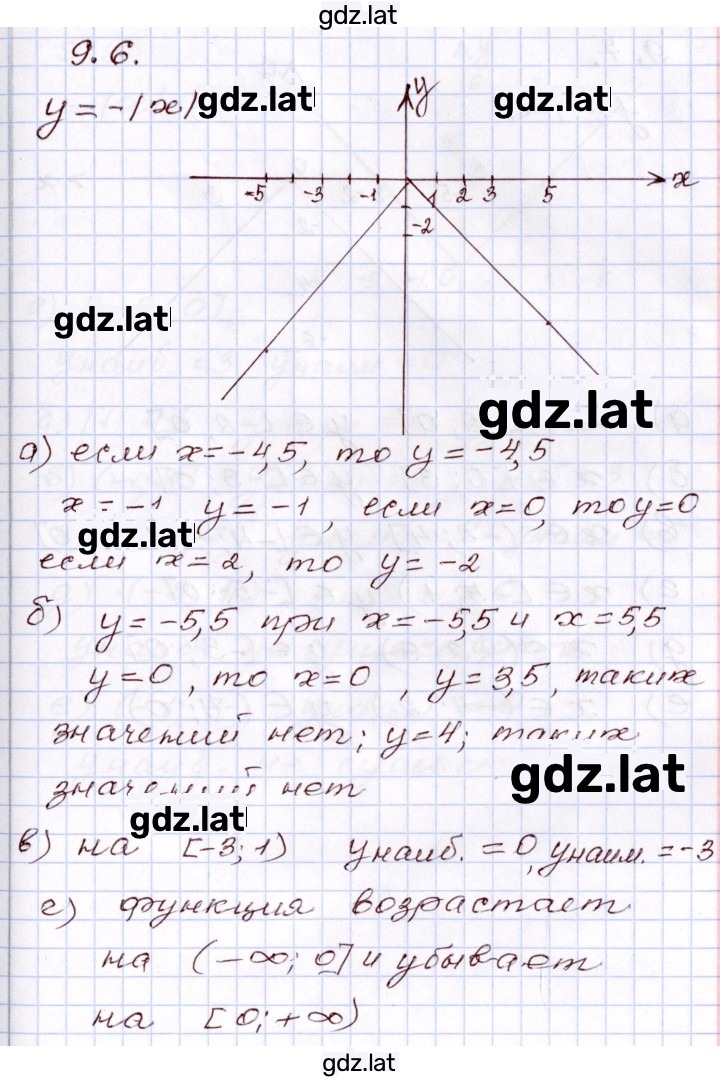 gdz.lat
9.6.
y = -|x| gdz.lat gdz.lat
y
x
-5 -3 -1 1 2 3 5
-2
gdz.lat
gdz.lat
а) если x = -4,5, то y = -4,5
x = -1 y = -1, если x = 0, то y = 0
gdz.lat
если x = 2, то y = -2
б) y = -5,5 при x = -5,5 и x = 5,5
y = 0, то x = 0, y = 3,5, таких
значений нет; y = 4; таких
gdz.lat
значений нет
gdz.lat
в) на [-3; 1) yнаиб. = 0, yнаим. = -3
г) функция возрастает
на (-∞; 0] и убывает
на [0; +∞)
gdz.lat